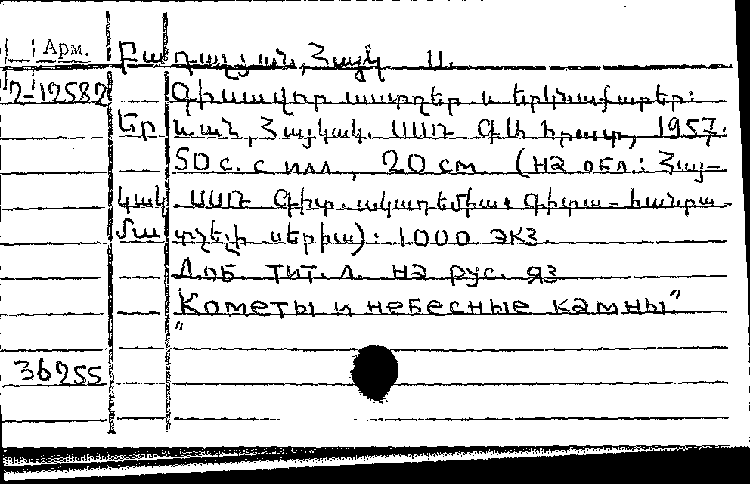 Арм. Բադալյան, Հայկ Ս.
2-12582 Գիսավոր աստղեր և երկնաքարեր:
Երևան, Հայկակ. ՍՍՌ ԳԱ հրատ, 1957.
50 с. с илл, 20 см (на обл.: Հայ-
կակ. ՍՍՌ Գիտ. ակադեմիա: Գիտա-հանրա
մատչելի սերիա): 1000 экз.
Доб. тит. л. на рус. яз
"Кометы и небесные камны"
36255